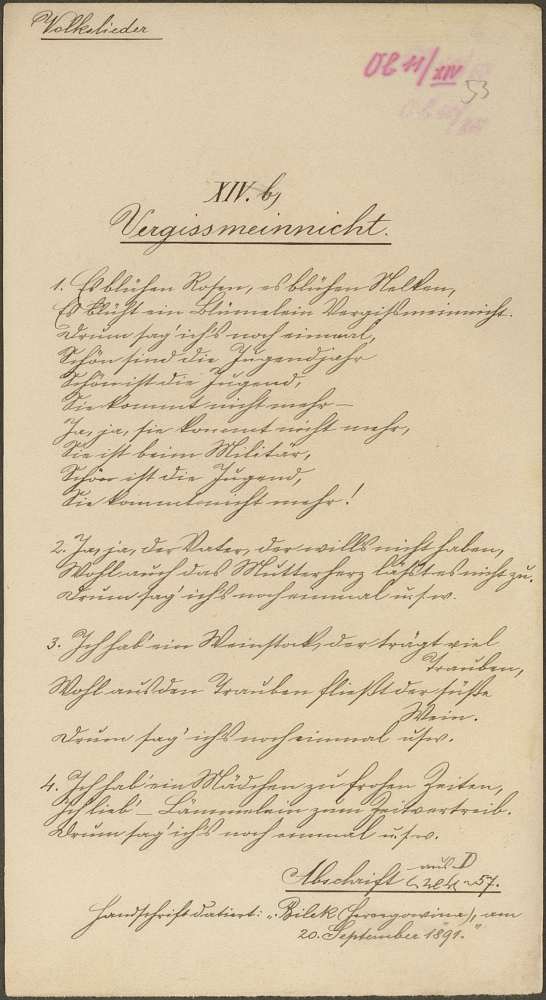 Volkslieder
Ob 11/XIV
53
XIV. b,
Vergissmeinnicht.
1. Es blühen Rosen, es blühen Nelken,
Es blüht ein Blümelein Vergißmeinnicht.
Drum sag' ich's noch einmal,
Schön sind die Jugendjahr
Schön ist die Jugend,
Sie kommt nicht mehr –
Ja, ja, sie kommt nicht mehr,
Sie ist beim Militär,
Schön ist die Jugend,
Sie kommt nicht mehr!
2. Ja, ja, der Vater, der wills nicht haben,
Wohl auch das Mutterherz läßt es nicht zu.
Drum sag' ich's noch einmal u. s. w.
3. Ich hab' ein Weinstock, der trägt viel
Trauben,
Wohl aus den Trauben fließt der süße
Wein.
Drum sag' ich's noch einmal usw.
4. Ich hab' ein Mädchen zu frohen Zeiten,
Ich lieb' – Lämmelein zum Zeitvertreib.
Drum sag ich's noch einmal u. s. w.
Abschrift aus D
57.
Handschrift datiert: „Bilek (Herzegowina), am
20. September 1891."